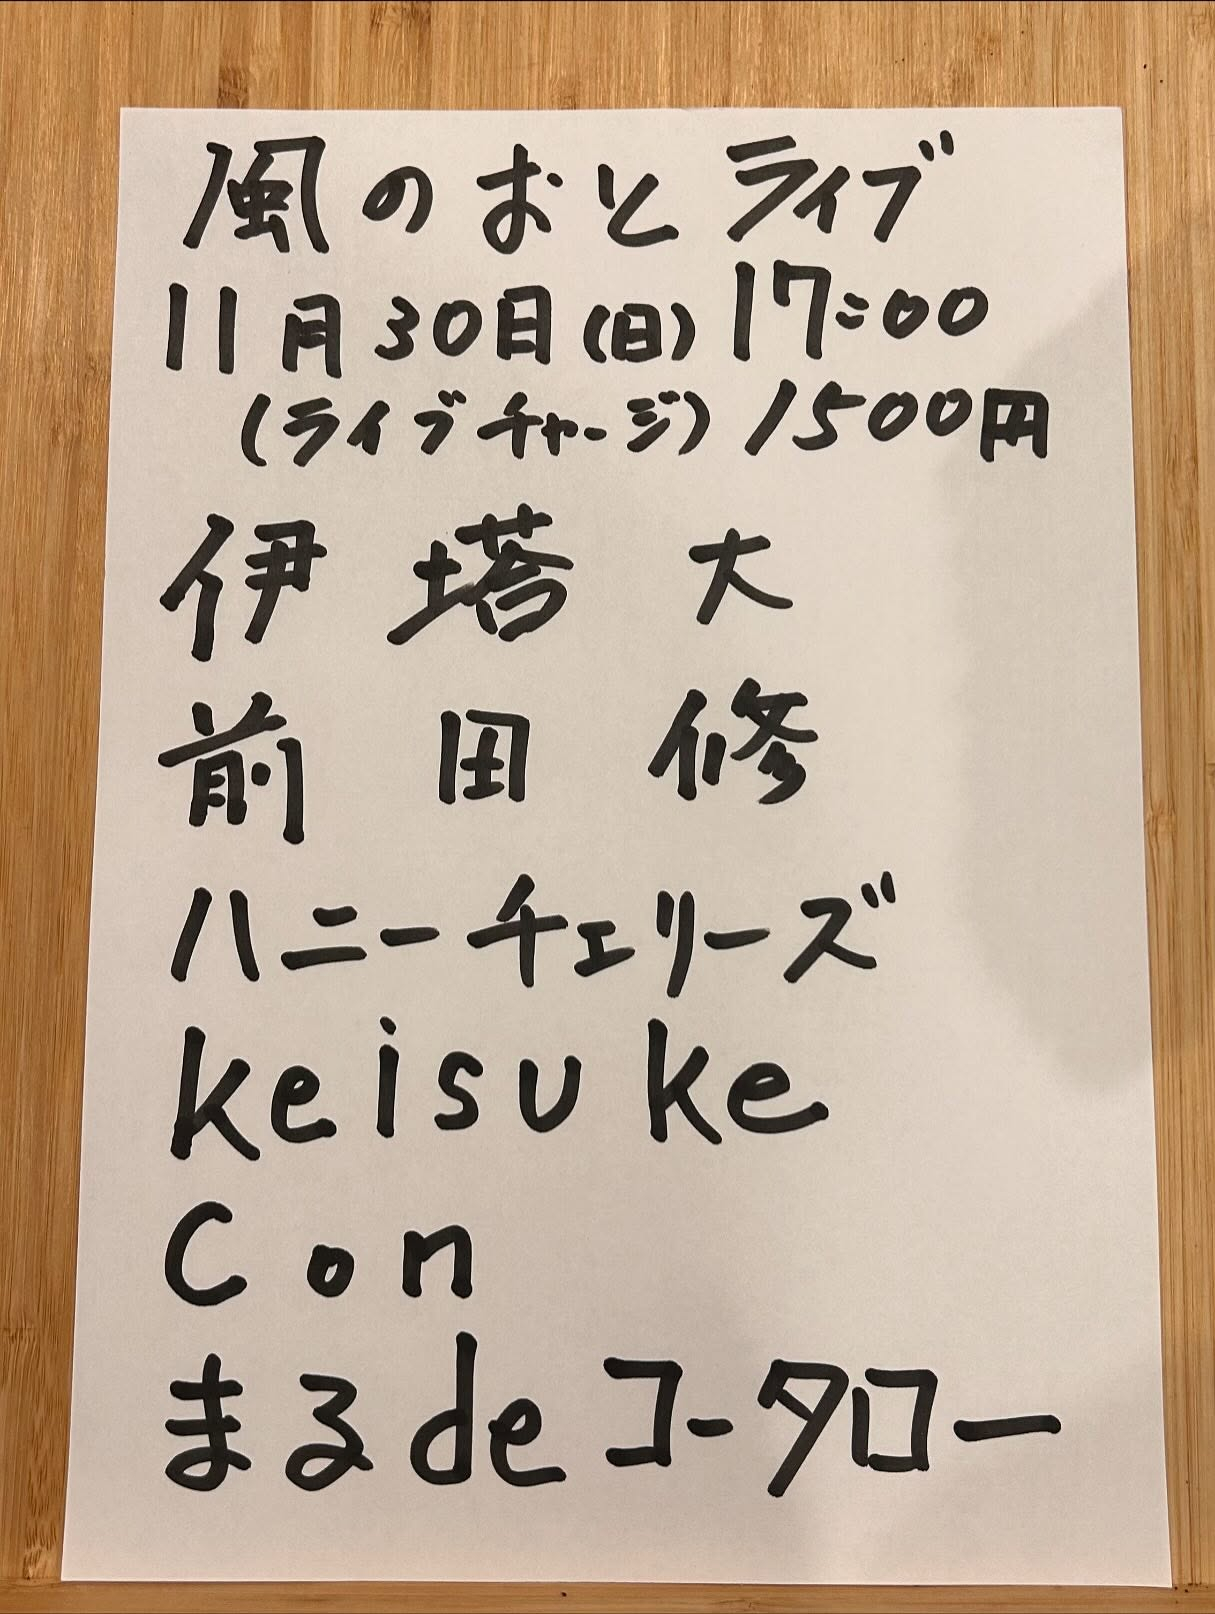 風のおと ライブ
11月30日(日) 17:00
(ライブチャージ) 1500円
伊塔大
前田修
ハニーチェリーズ
keisuke
Con
まるdeコータロー